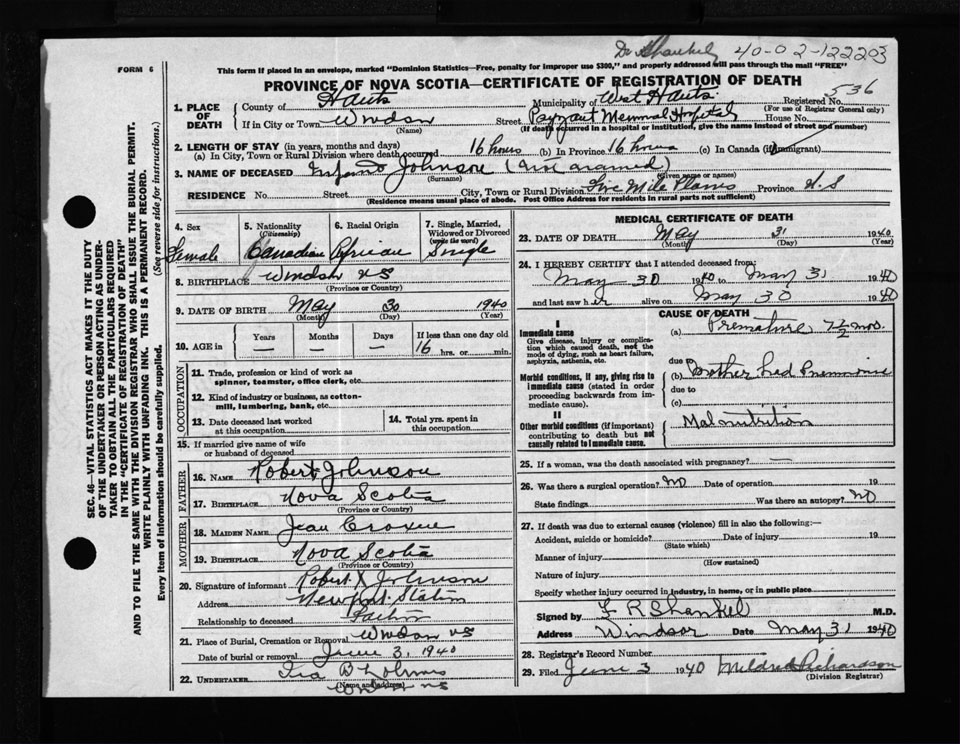 Dr Shankel 40-02-122203
FORM 6
This form if placed in an envelope, marked "Dominion Statistics—Free, penalty for improper use $300," and properly addressed will pass through the mail "FREE"
PROVINCE OF NOVA SCOTIA—CERTIFICATE OF REGISTRATION OF DEATH
536
1. PLACE OF DEATH County of Hants Municipality of West Hants Registered No.
(For use of Registrar General only)
If in City or Town Windsor Street Payzant Memorial Hospital House No.
(Name) (If death occurred in a hospital or institution, give the name instead of street and number)
2. LENGTH OF STAY (in years, months and days)
(a) In City, Town or Rural Division where death occurred 16 hours (b) In Province 16 hours (c) In Canada (if immigrant)
3. NAME OF DECEASED Infant Johnson
(Surname) (Given name or names)
RESIDENCE No. Street City, Town or Rural Division Five Mile Plains Province N.S
(Residence means usual place of abode. Post Office Address for residents in rural parts not sufficient)
4. Sex Female
5. Nationality (Citizenship) Canadian
6. Racial Origin African
7. Single, Married, Widowed or Divorced (write the word) Single
8. BIRTHPLACE Windsor NS
(Province or Country)
9. DATE OF BIRTH May 30 1940
(Month) (Day) (Year)
10. AGE Years Months Days If less than one day old
— — — 16 hrs. or min.
OCCUPATION
11. Trade, profession or kind of work as spinner, teamster, office clerk, etc.
12. Kind of industry or business, as cotton-mill, lumbering, bank, etc.
13. Date deceased last worked at this occupation
14. Total yrs. spent in this occupation
15. If married give name of wife or husband of deceased
FATHER
16. NAME Robert Johnson
17. BIRTHPLACE Nova Scotia
(Province or Country)
MOTHER
18. MAIDEN NAME Jean
19. BIRTHPLACE Nova Scotia
(Province or Country)
20. Signature of informant Robert Johnson
Address Newport Station
Relationship to deceased Father
21. Place of Burial, Cremation or Removal Windsor NS
Date of burial or removal June 3, 1940
22. UNDERTAKER Ira B
(Name and address)
Windsor NS
MEDICAL CERTIFICATE OF DEATH
23. DATE OF DEATH May 31 1940
(Month) (Day) (Year)
24. I HEREBY CERTIFY that I attended deceased from:
May 30 1940 to May 31 1940
and last saw her alive on May 30 1940
CAUSE OF DEATH
I
Immediate cause
Give disease, injury or complication which caused death, not the mode of dying, such as heart failure, asphyxia, asthenia, etc.
(a) Premature 7½ mos.
due to
Morbid conditions, if any, giving rise to immediate cause (stated in order proceeding backwards from immediate cause).
(b) Mother had Pneumonia
due to
(c)
II
Other morbid conditions (if important) contributing to death but not causally related to immediate cause.
Malnutrition
25. If a woman, was the death associated with pregnancy? —
26. Was there a surgical operation? No Date of operation 19
State findings Was there an autopsy? No
27. If death was due to external causes (violence) fill in also the following:—
Accident, suicide or homicide? Date of injury 19
(State which)
Manner of injury
(How sustained)
Nature of injury
Specify whether injury occurred in industry, in home, or in public place
Signed by F R Shankel M.D.
Address Windsor Date May 31 1940
28. Registrar's Record Number
29. Filed June 3 1940 Mildred Richardson
(Division Registrar)
SEC. 46—VITAL STATISTICS ACT MAKES IT THE DUTY
OF THE UNDERTAKER OR PERSON ACTING AS UNDERTAKER TO OBTAIN ALL THE PARTICULARS REQUIRED
IN THE "CERTIFICATE OF REGISTRATION OF DEATH"
AND TO FILE THE SAME WITH THE DIVISION REGISTRAR WHO SHALL ISSUE THE BURIAL PERMIT.
WRITE PLAINLY WITH UNFADING INK. THIS IS A PERMANENT RECORD.
Every item of information should be carefully supplied. (See reverse side for instructions.)